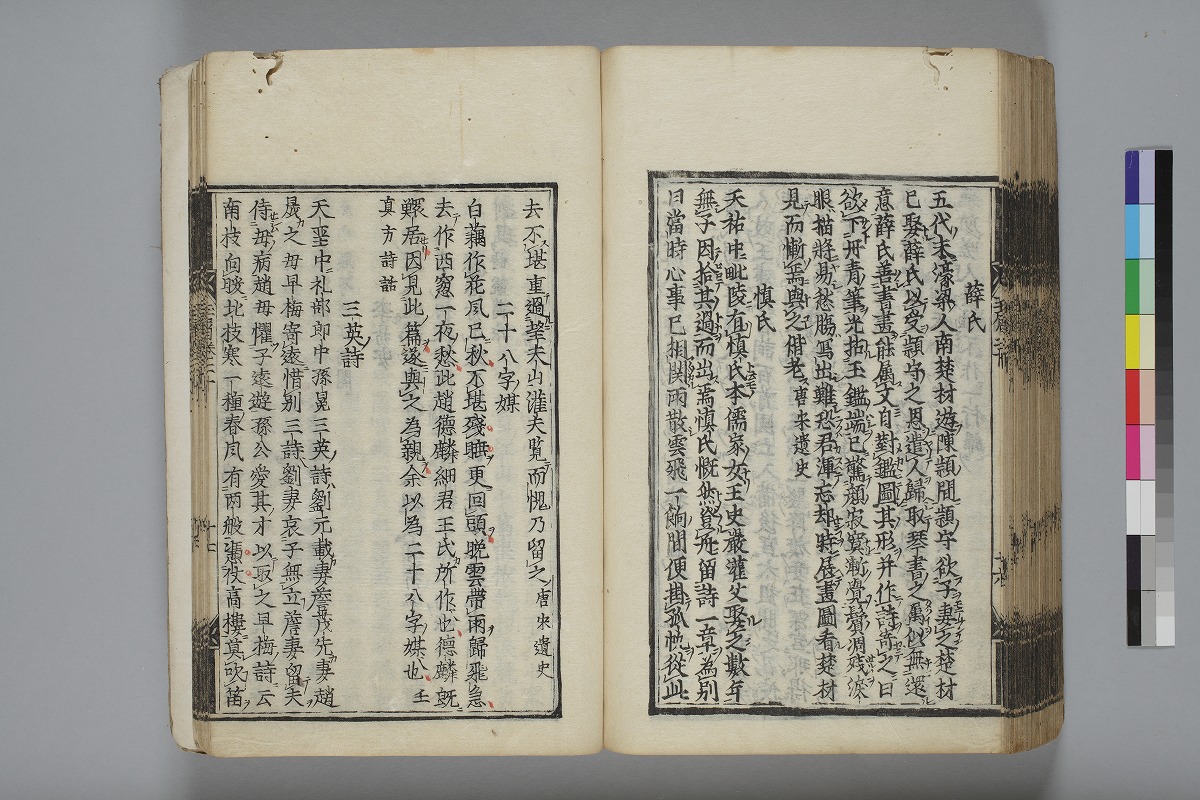 薛氏
五代末濠梁人南楚材遊陳穎間穎守欲子妻之楚材
已娶薛氏以受穎守之恩遣人歸取琴書之属似無還
意薛氏善書畫能属文自對鑑圖其形并作詩寄之曰
欲下丹青筆先拈玉鑑端已驚顔寂寞漸覺鬢凋残涙
眼描將易愁膓寫出難恐君渾忘却時展畫圖看楚材
見而慚焉與之偕老唐宋遺史
慎氏
天祐中毗陵有慎氏本儒家女王史嚴灌夫娶之數年
無子因拾其過而出焉慎氏慨然登舟留詩一章為別
曰當時心事已相関雨散雲飛一餉間便掛孤帆從此
去不堪重過望夫山灌夫覧而愧乃留之唐宋遺史
二十八字媒
白藕作花風已秋不堪殘睡更回頭晩雲帶雨歸飛急
去作西窓一夜愁此趙德麟細君王氏所作也德麟既
鰥居因見此篇遂與之為親余以為二十八字媒也王
真方詩話
三英詩
天聖中礼部郎中孫冕三英詩劉元載妻詹茂先妻趙
晟之母早梅寄遠惜別三詩劉妻哀子無立詹妻留夫
侍母病趙母懼子遠遊孫公愛其才以取之早梅詩云
南枝向暖北枝寒一種春風有兩般憑仗高樓莫吹笛